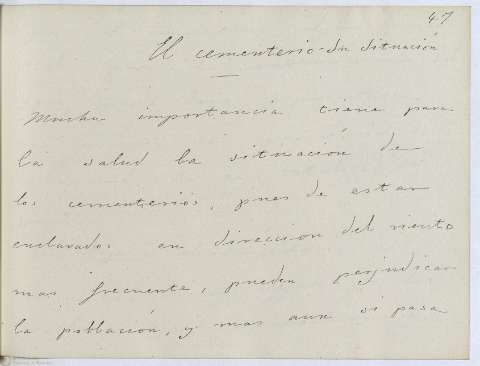 47
El cementerio su situación
Mucha importancia tiene para
la salud la situación de
los cementerios, pues de estar
enclavados en direccion del viento
mas frecuente, pueden perjudicar
la población, y mas aun si pasa